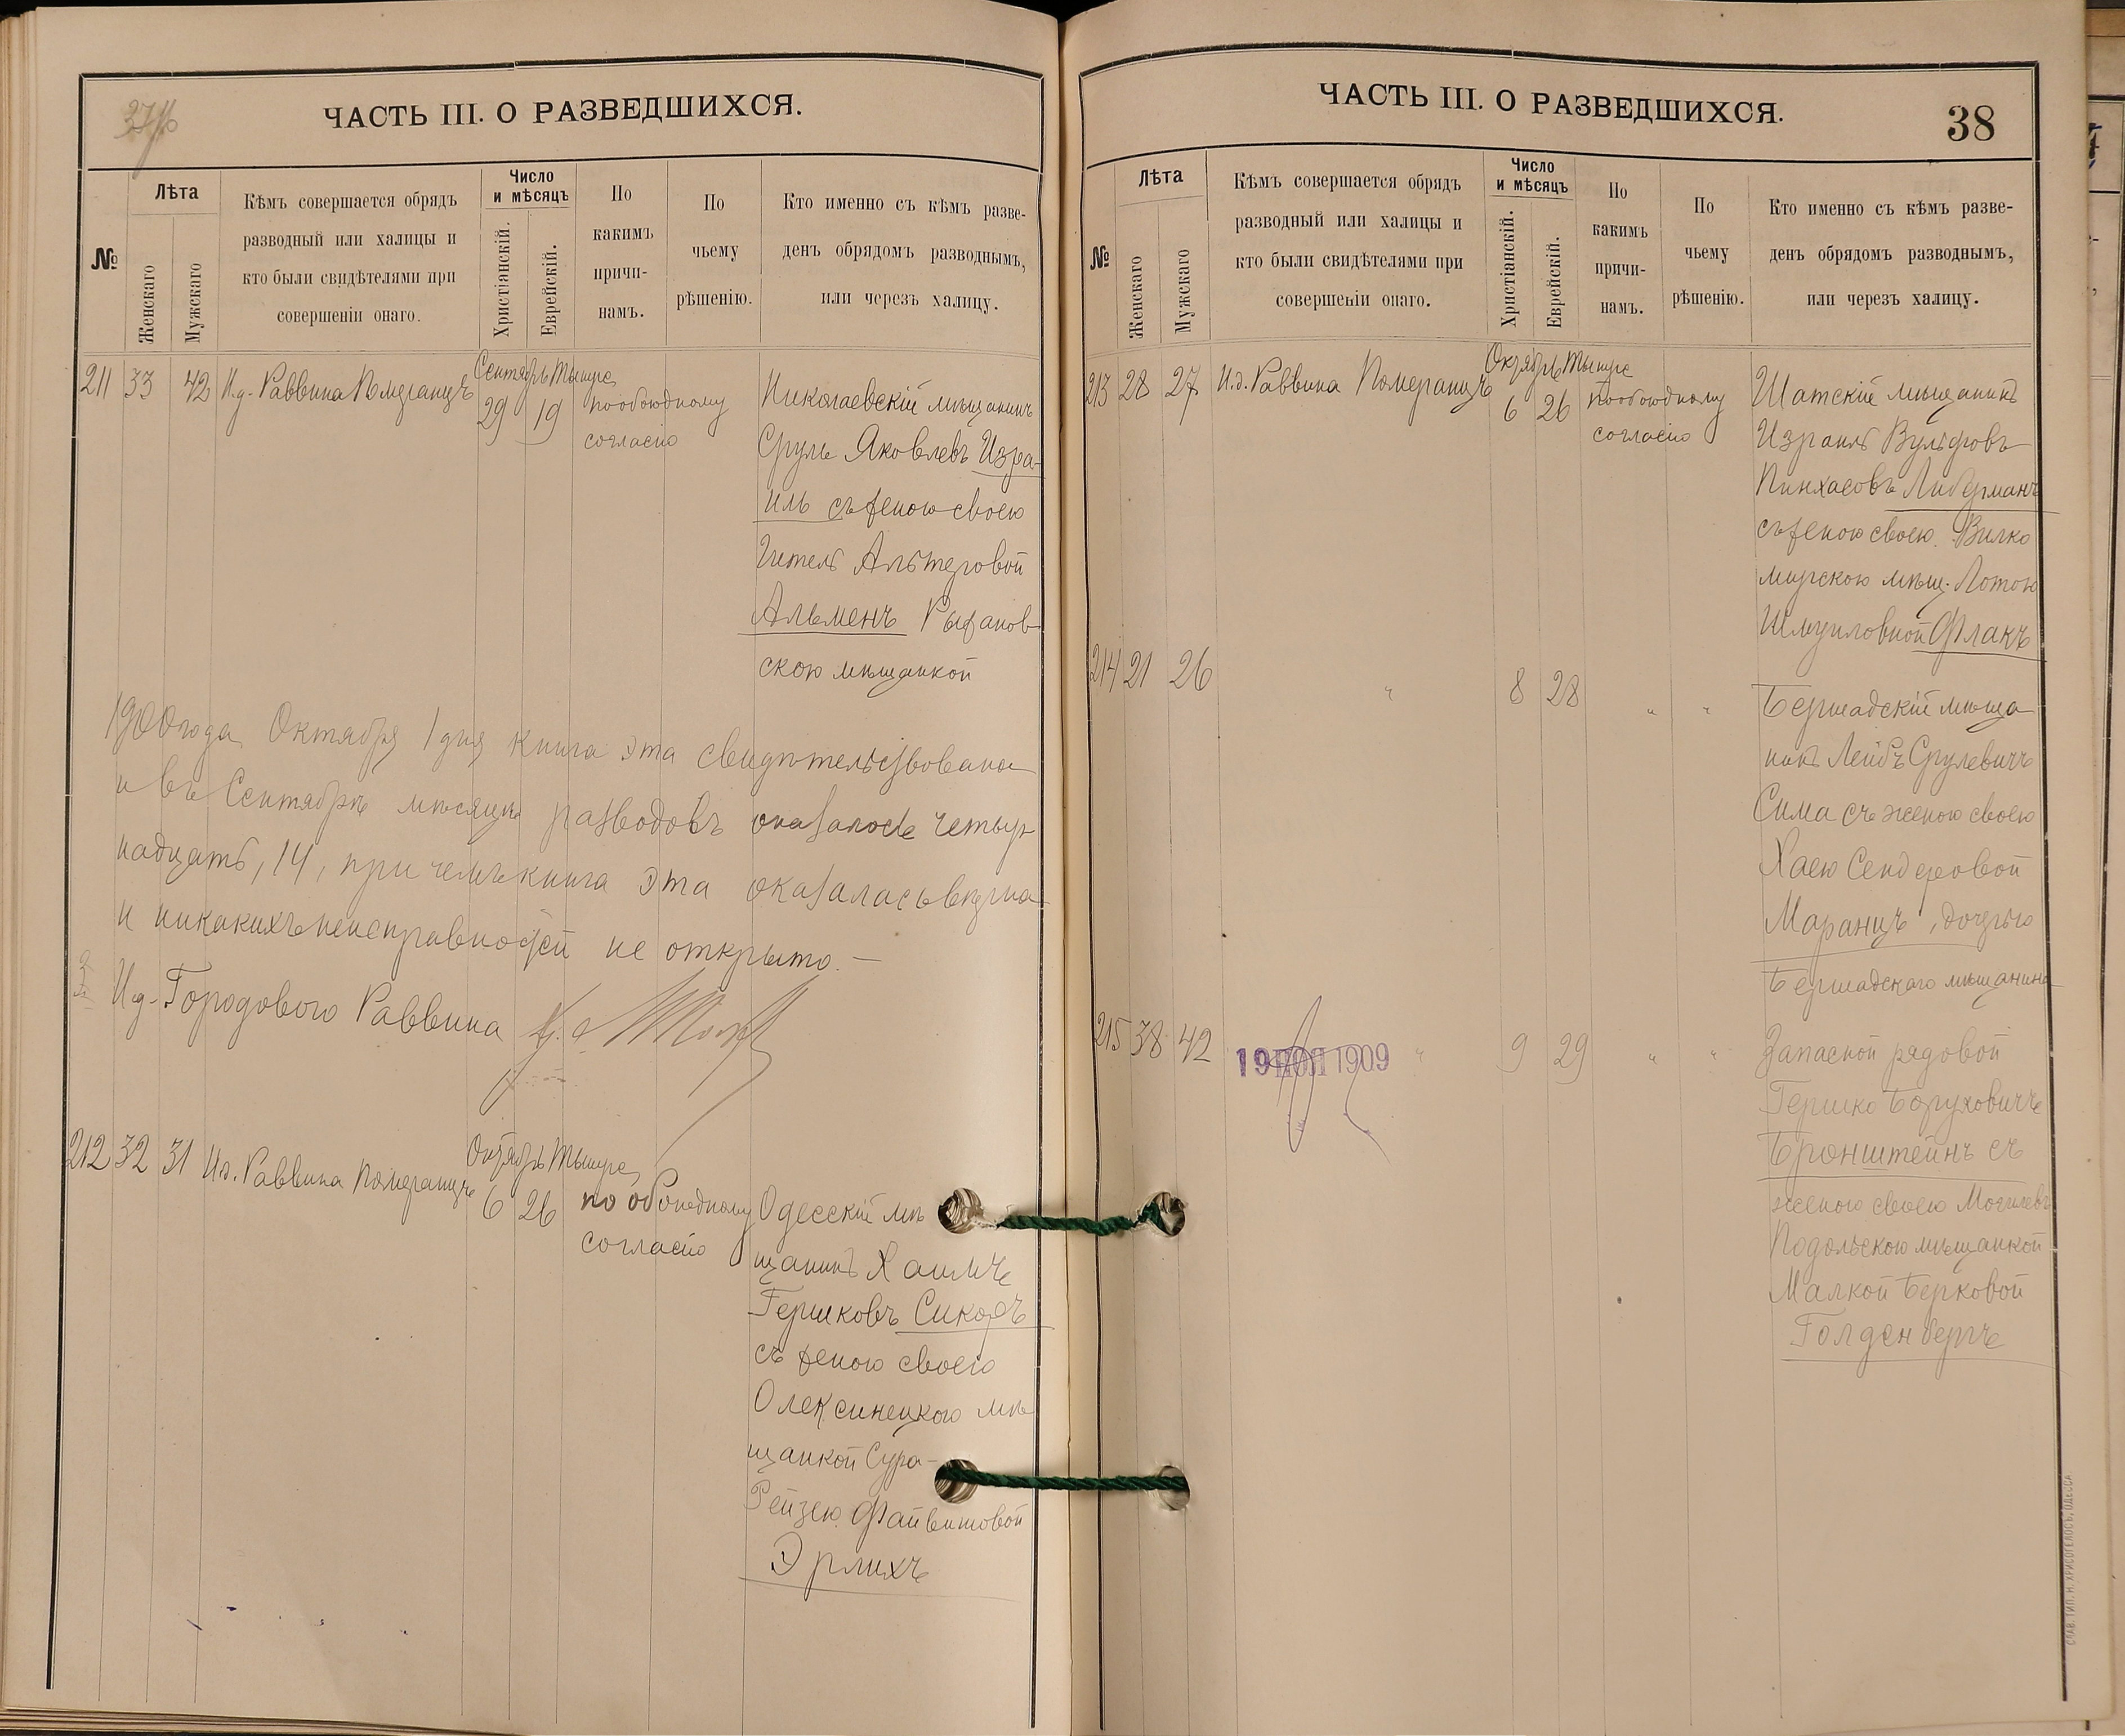 ЧАСТЬ III. О РАЗВЕДШИХСЯ.
№
Лѣта
Женскаго
Мужскаго
Кѣмъ совершается обрядъ
разводный или халицы и
кто были свидѣтелями при
совершеніи онаго.
Число
и мѣсяцъ
Христіанскій.
Еврейскій.
По
какимъ
причи-
намъ.
По
чьему
рѣшенію.
Кто именно съ кѣмъ разве-
денъ обрядомъ разводнымъ,
или черезъ халицу.
211 33 42 И.д. Раввина Померанцъ
Сентябрь Тышре
29 19
по обоюдному
согласію
Николаевскій мѣщанинъ
Сруль Яковлевъ Изра-
иль съ женою своею
Гитель Альтеровой
Альменъ Ржанов
скою мѣщанкой
1900 года Октября 1 дня книга эта свидѣтельствована
и въ Сентябрѣ мѣсяцѣ разводовъ оказалось четыр-
надцать, 14, при чемъ книга эта оказалась вѣрна
и никакихъ неисправностей не открыто. —
И.д. Городового Раввина
212 32 31 И.д. Раввина Померанцъ
Октябрь Тышре
6 26
по обоюдному
согласію
Одесскій мѣ
щанинъ Хаимъ
Гершковъ Сикоръ
съ женою своею
Олексинецкого мѣ
щанкой Сура-
Рейзею Файвишовой
Эрлихъ
ЧАСТЬ III. О РАЗВЕДШИХСЯ.
38
№
Лѣта
Женскаго
Мужскаго
Кѣмъ совершается обрядъ
разводный или халицы и
кто были свидѣтелями при
совершеніи онаго.
Число
и мѣсяцъ
Христіанскій.
Еврейскій.
По
какимъ
причи-
намъ.
По
чьему
рѣшенію.
Кто именно съ кѣмъ разве-
денъ обрядомъ разводнымъ,
или черезъ халицу.
213 28 27 И.д. Раввина Померанцъ
Октябрь Тышре
6 26
по обоюдному
согласію
Шатскій мѣщанинъ
Израиль Вульфовъ
Пинхасовъ Либерманъ
съ женою своею Вилко
мирскою мѣщ. Лотою
Шмуиловной Флакъ
214 21 26 " 8 28 " "
Бершадскій мѣща
нинъ Лейбъ Срулевичъ
Сима съ женою своею
Хаею Сендеровой
Маранцъ, дочерью
Бершадскаго мѣщанина
215 38 42 " 9 29 " "
19 ІЮЛ 1909
Запасной рядовой
Гершко Боруховичъ
Бронштейнъ съ
женою своею Могилевъ
Подольскою мѣщанкой
Малкой Берковой
Голденбергъ
СЛАВ. ТИП. Н. ХРИСОГЕЛОСЪ, ОДЕССА